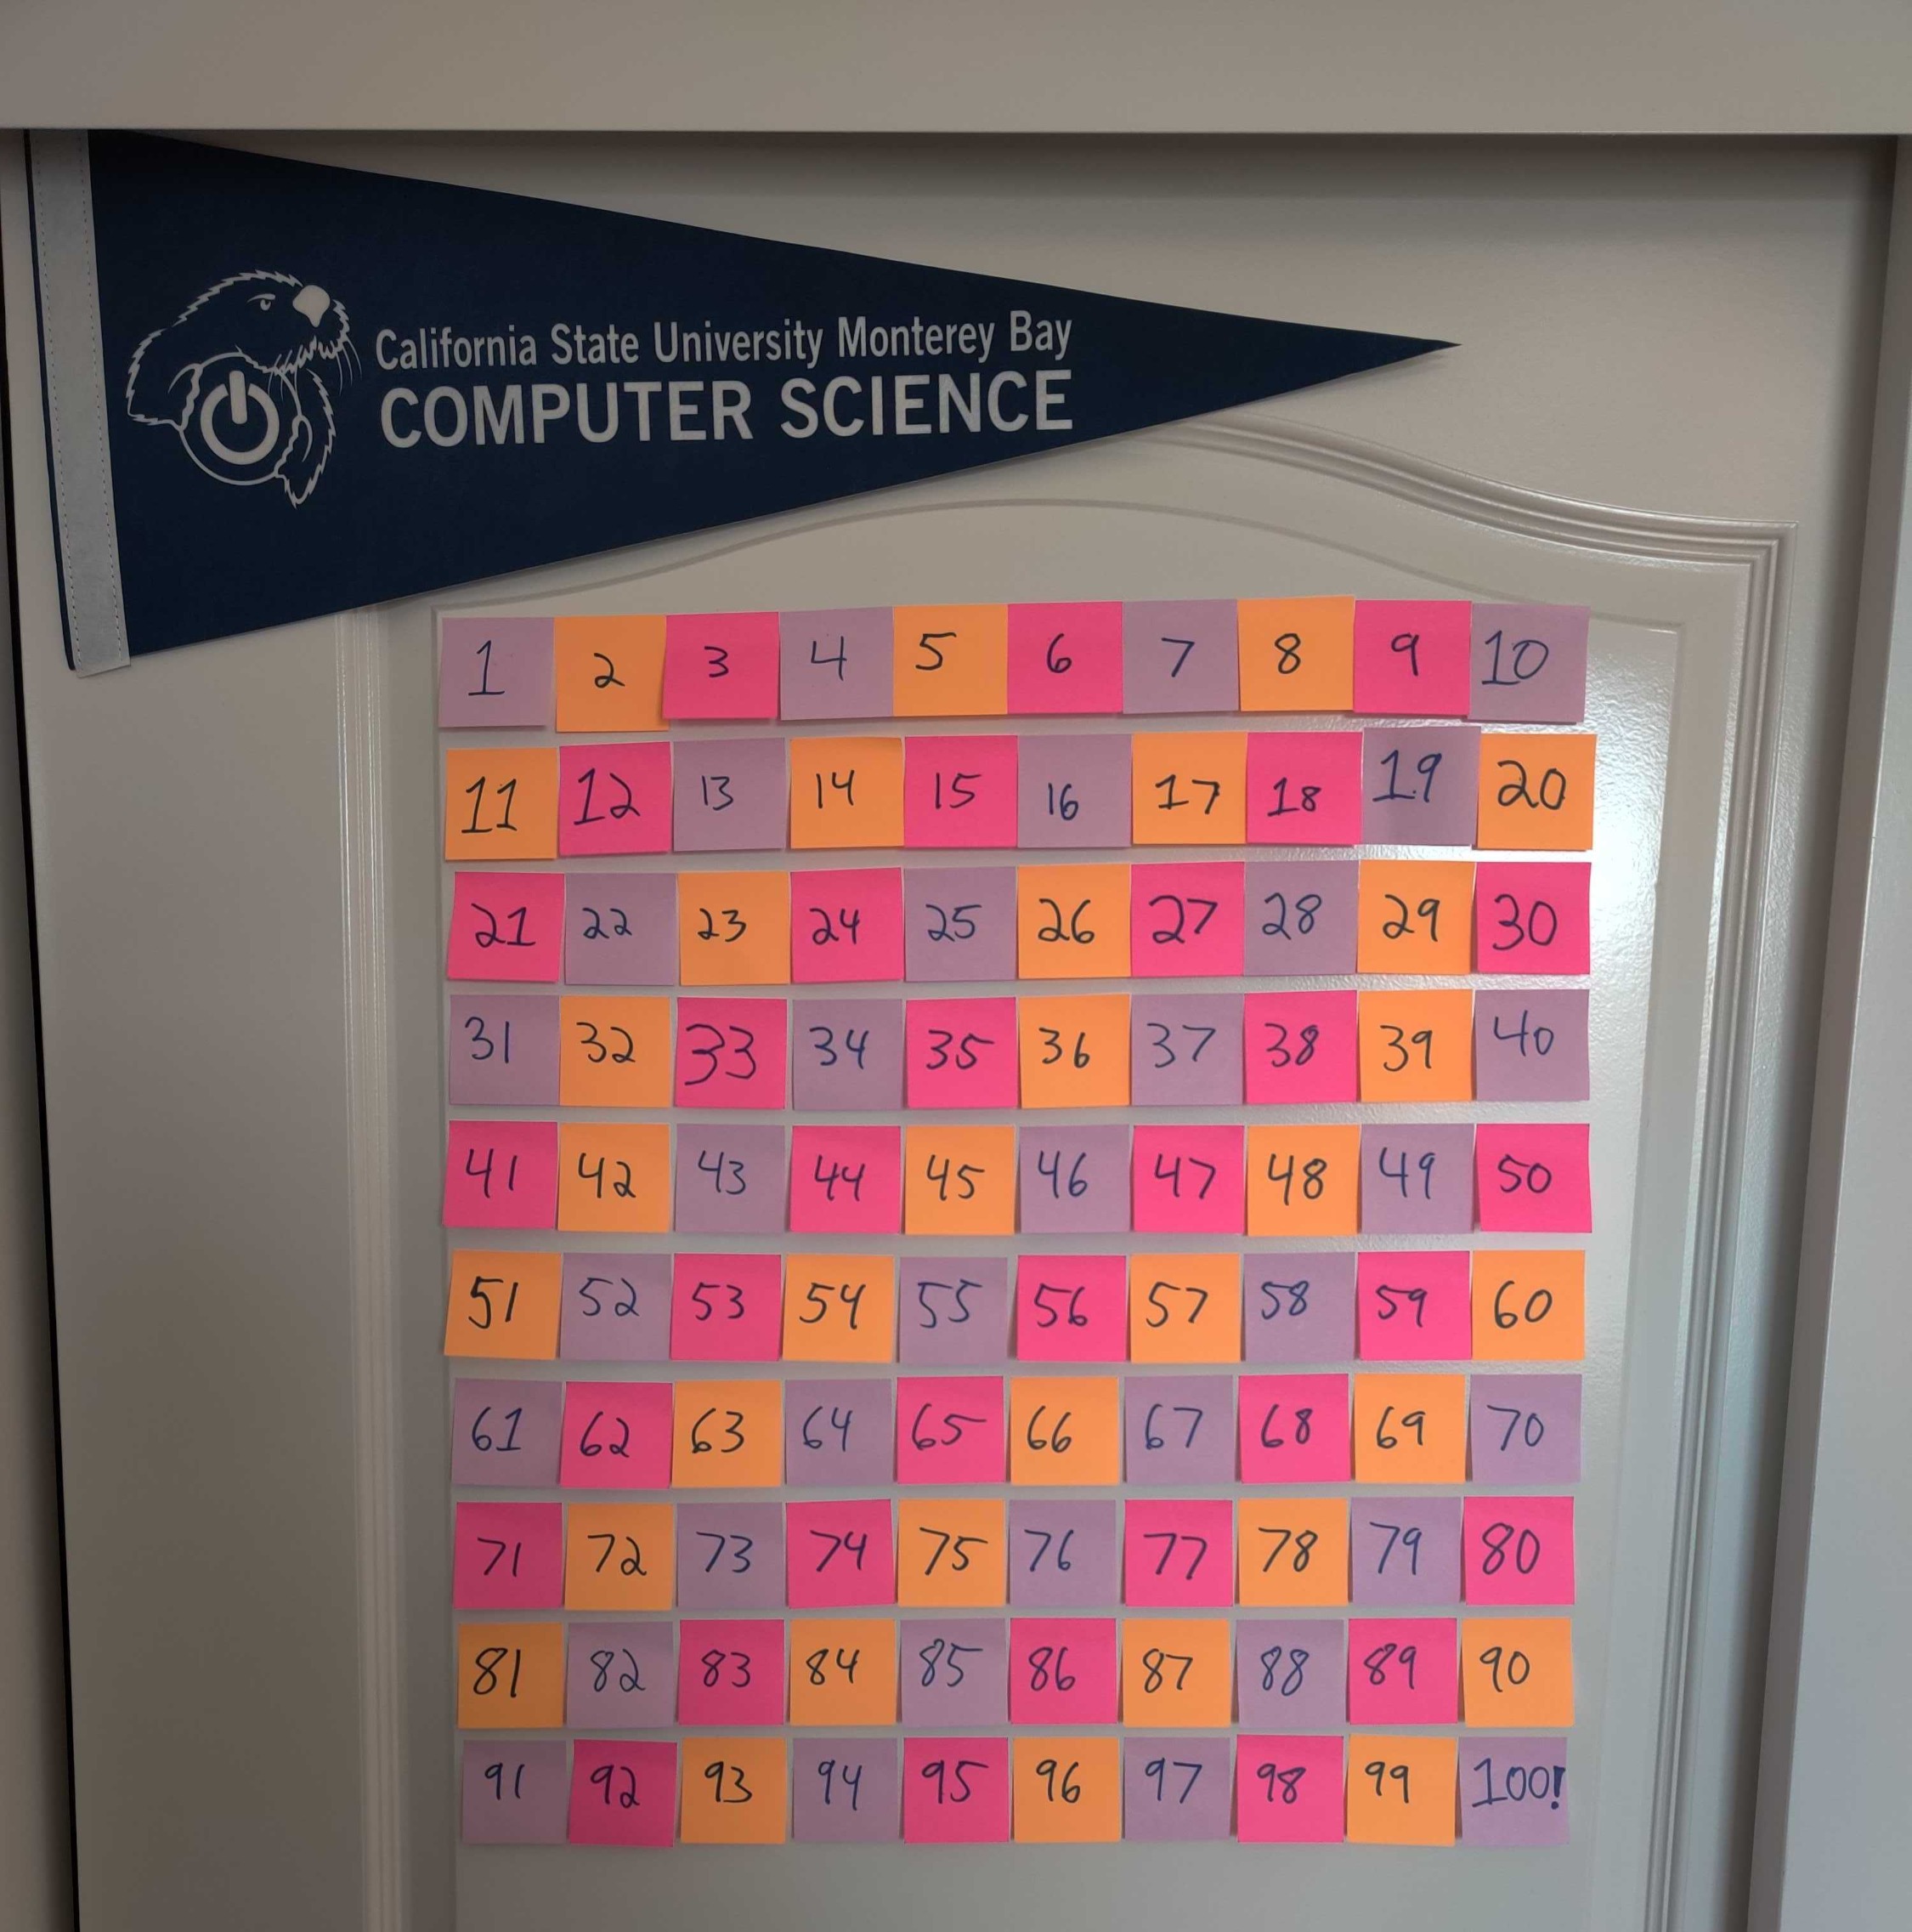 California State University Monterey Bay
COMPUTER SCIENCE
1 2 3 4 5 6 7 8 9 10
11 12 13 14 15 16 17 18 19 20
21 22 23 24 25 26 27 28 29 30
31 32 33 34 35 36 37 38 39 40
41 42 43 44 45 46 47 48 49 50
51 52 53 54 55 56 57 58 59 60
61 62 63 64 65 66 67 68 69 70
71 72 73 74 75 76 77 78 79 80
81 82 83 84 85 86 87 88 89 90
91 92 93 94 95 96 97 98 99 100!